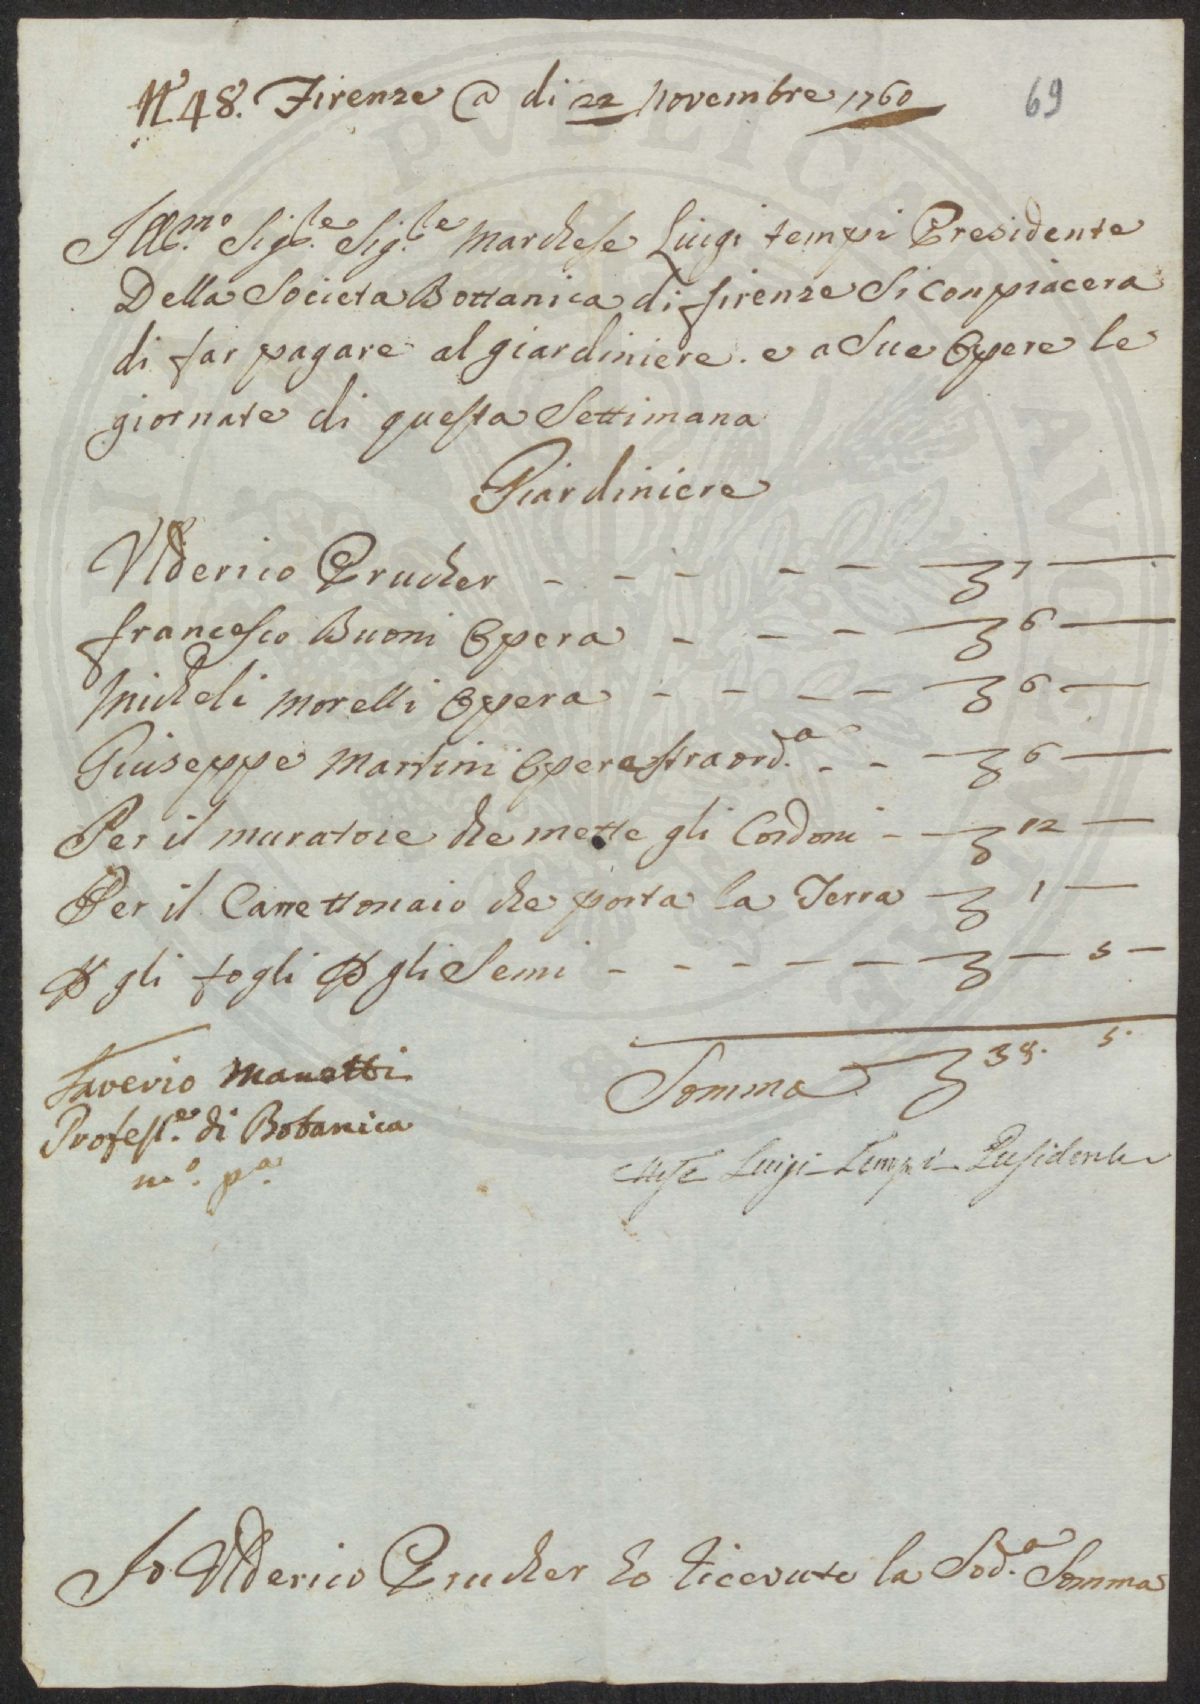 N.° 48. Firenze @ di 22 Novembre 1760
69
Ill.mo Sig.re Sig.re Marchese Luigi tempi Presidente
Della Societa Bottanica di firenze Si conpiacera
di far pagare al giardiniere. e a Sue Opere le
giornate di questa Settimana
Giardiniere
Ulderico Prucher - - - - - ʒ 7 —
francesco Buoni Opera - - - ʒ 6 —
Micheli Morelli Opera - - - - ʒ 6 —
Giuseppe Martini Opera straord.a - - ʒ 6 —
Per il muratore che mette gli Cordoni - - ʒ 12 —
Per il Carrettonaio che porta la Terra - ʒ 1 —
℘ gli fogli ℘ gli Semi - - - - - - ʒ — 5 —
Somma ʒ 38. 5.
Saverio Manetti
Profess.e di Botanica
m.o p.a
Luigi Tempi Presidente
Io Ulderico Prucher ho ricevuto la Sod.a Somma